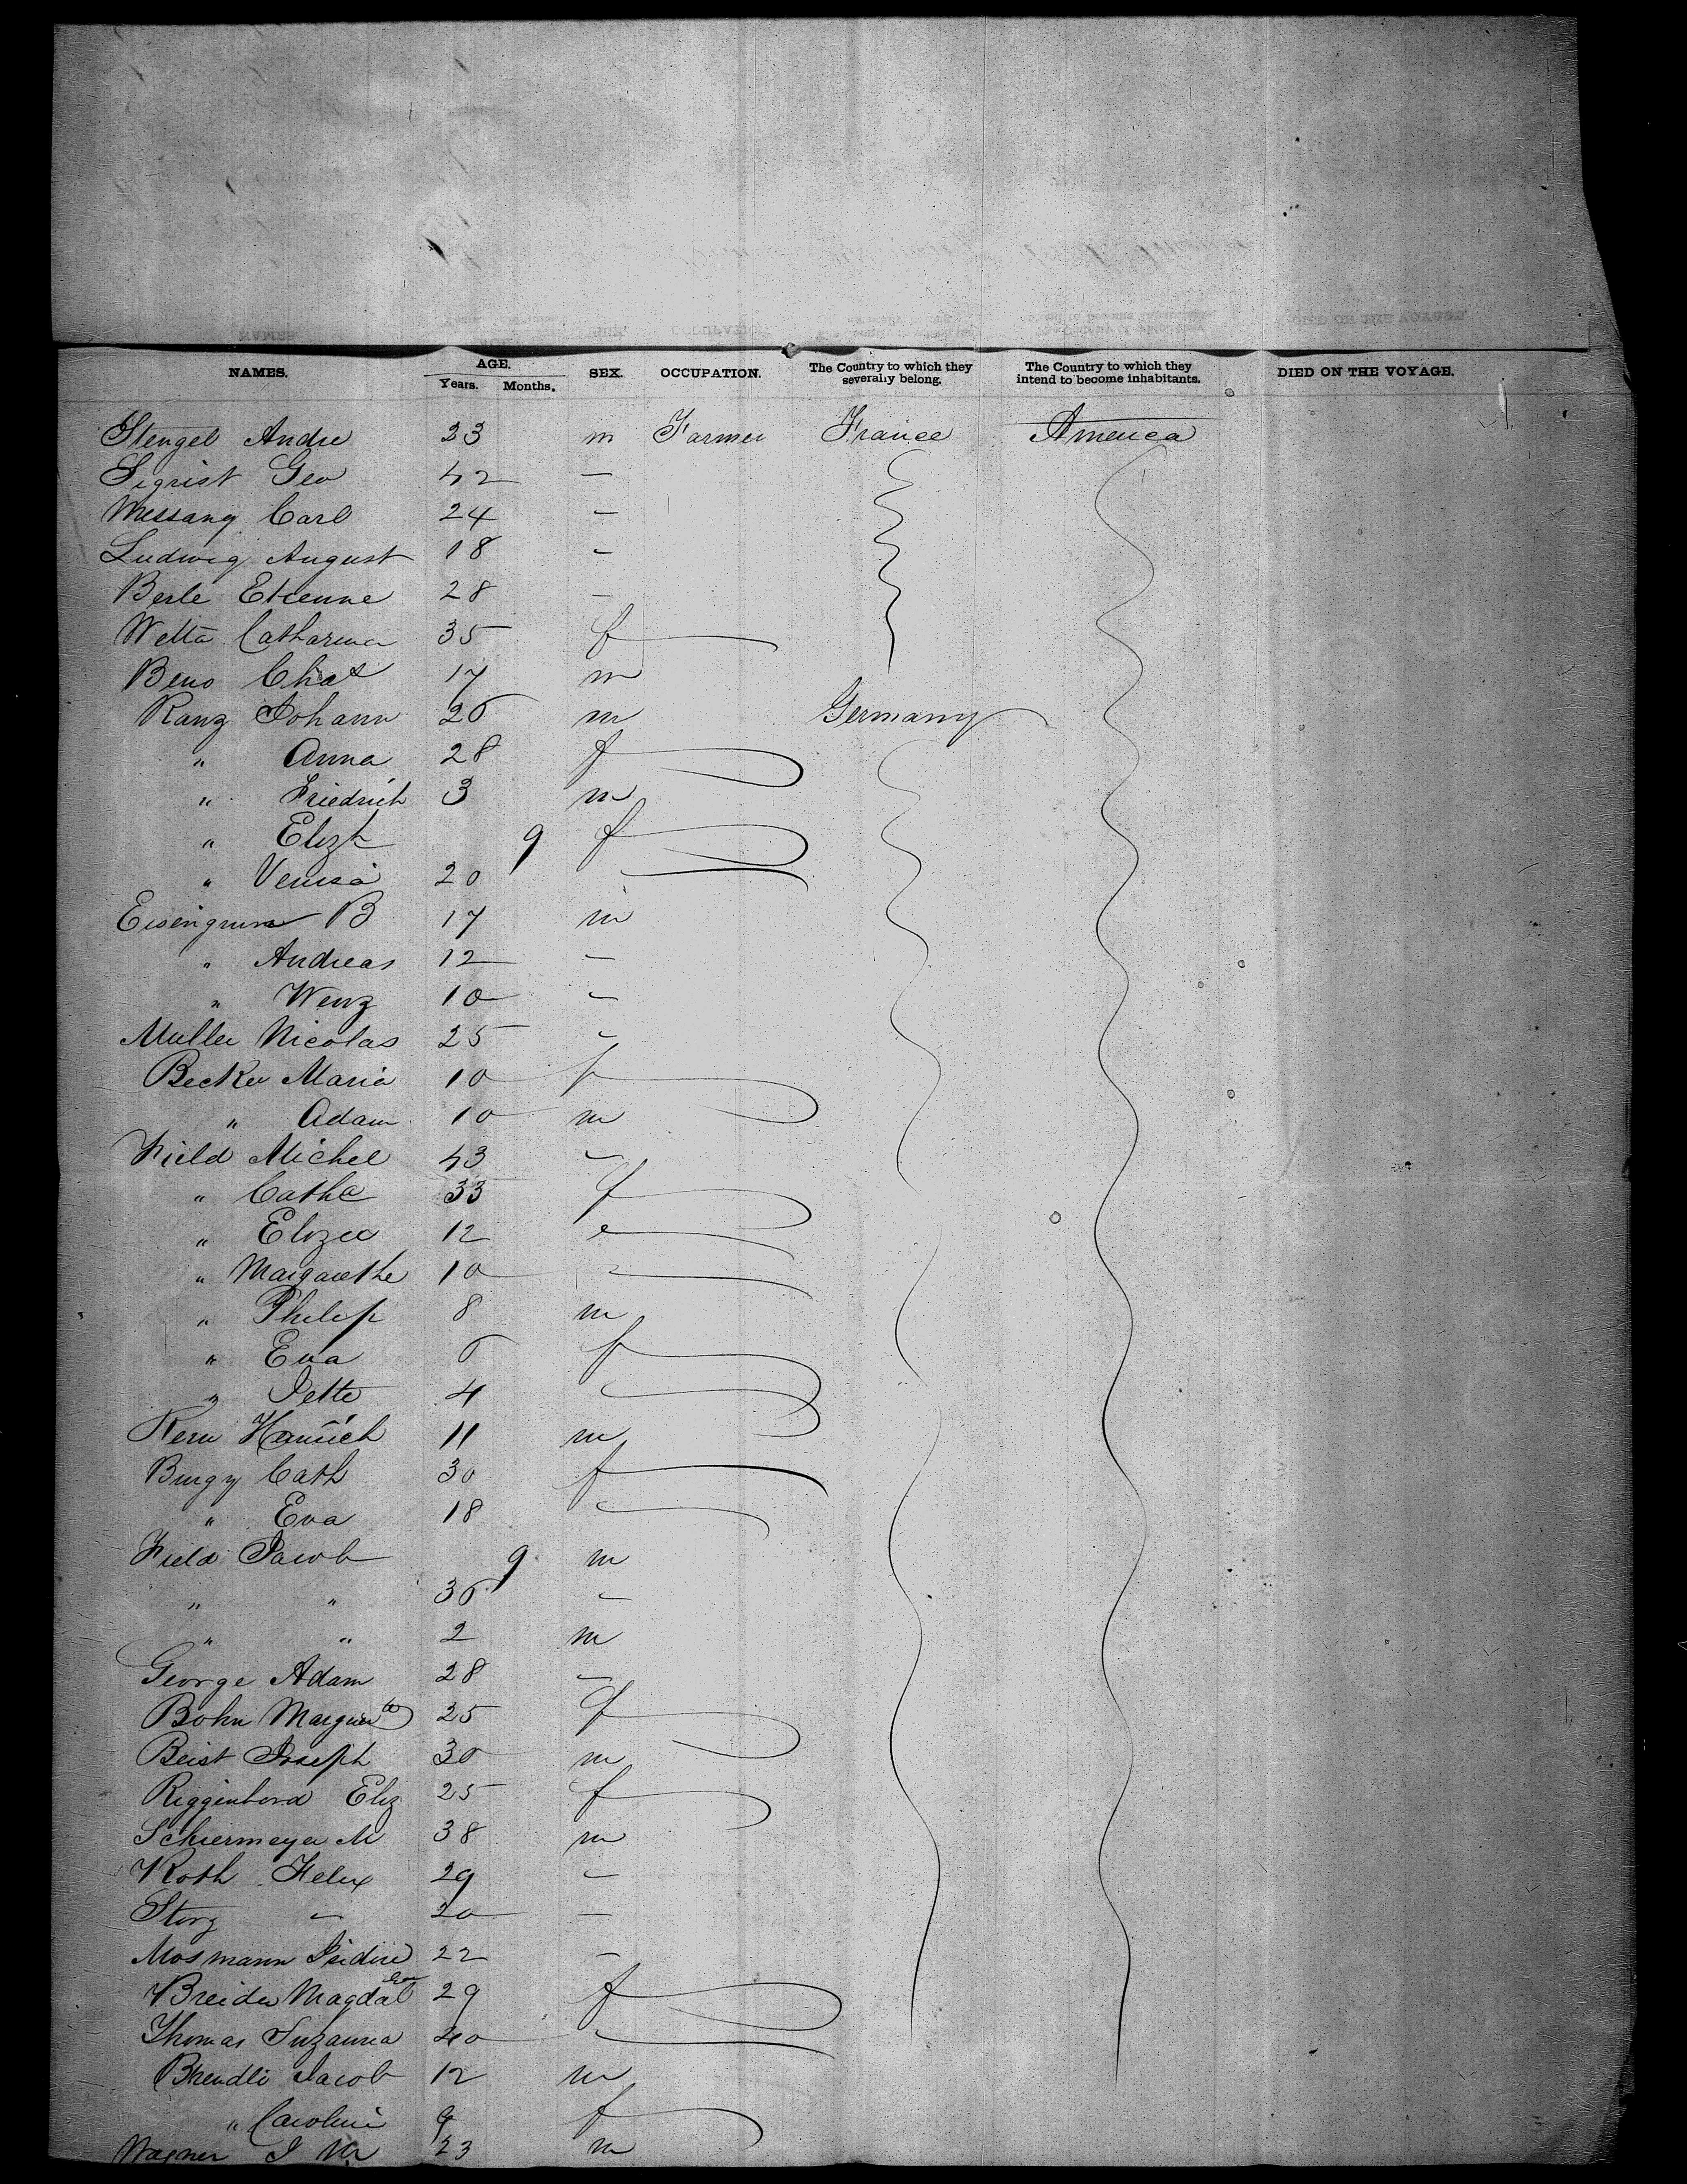 NAMES. AGE. SEX. OCCUPATION. The Country to which they severally belong. The Country to which they intend to become inhabitants. DIED ON THE VOYAGE.
Years. Months.
Stengel Andre 23 m Farmer France America
Sigrist Geo 42 —
Messang Carl 24 —
Ludwig August 18 —
Berle Etienne 28 —
Wetta Catharina 35 f
Beno Chas 17 m
Ranz Johann 26 m Germany
" Anna 28 f
" Friedrich 3 m
" Elizt 9 f
" 20
Eisengrun B 17 m
" Andreas 12 —
" Wenz 10 —
Muller Nicolas 25 —
Becker Maria 10 f
" Adam 10 m
Field Michel 43 —
" Catha 33 f
" Eliza 12
" Margarethe 10
" Philip 8 m
" Eva 6 f
" Jette 4
Kern Heinrich 11 m
Burgy Cath 30 f
" Eva 18
Field Jacob 9 m
" " 36 —
" " 2 m
George Adam 28 —
Bohn Marguerite 25 f
Beist Joseph 30 m
Eliz 25 f
Schiermeyer M 38 m
Roth Felix 29 —
Storz — 20 —
Mosmann Isidire 22 —
Breider Magdal 29 f
Thomas Suzanna 40
Brendli Jacob 12 m
" Carolini 9 f
Wagner J 23 m